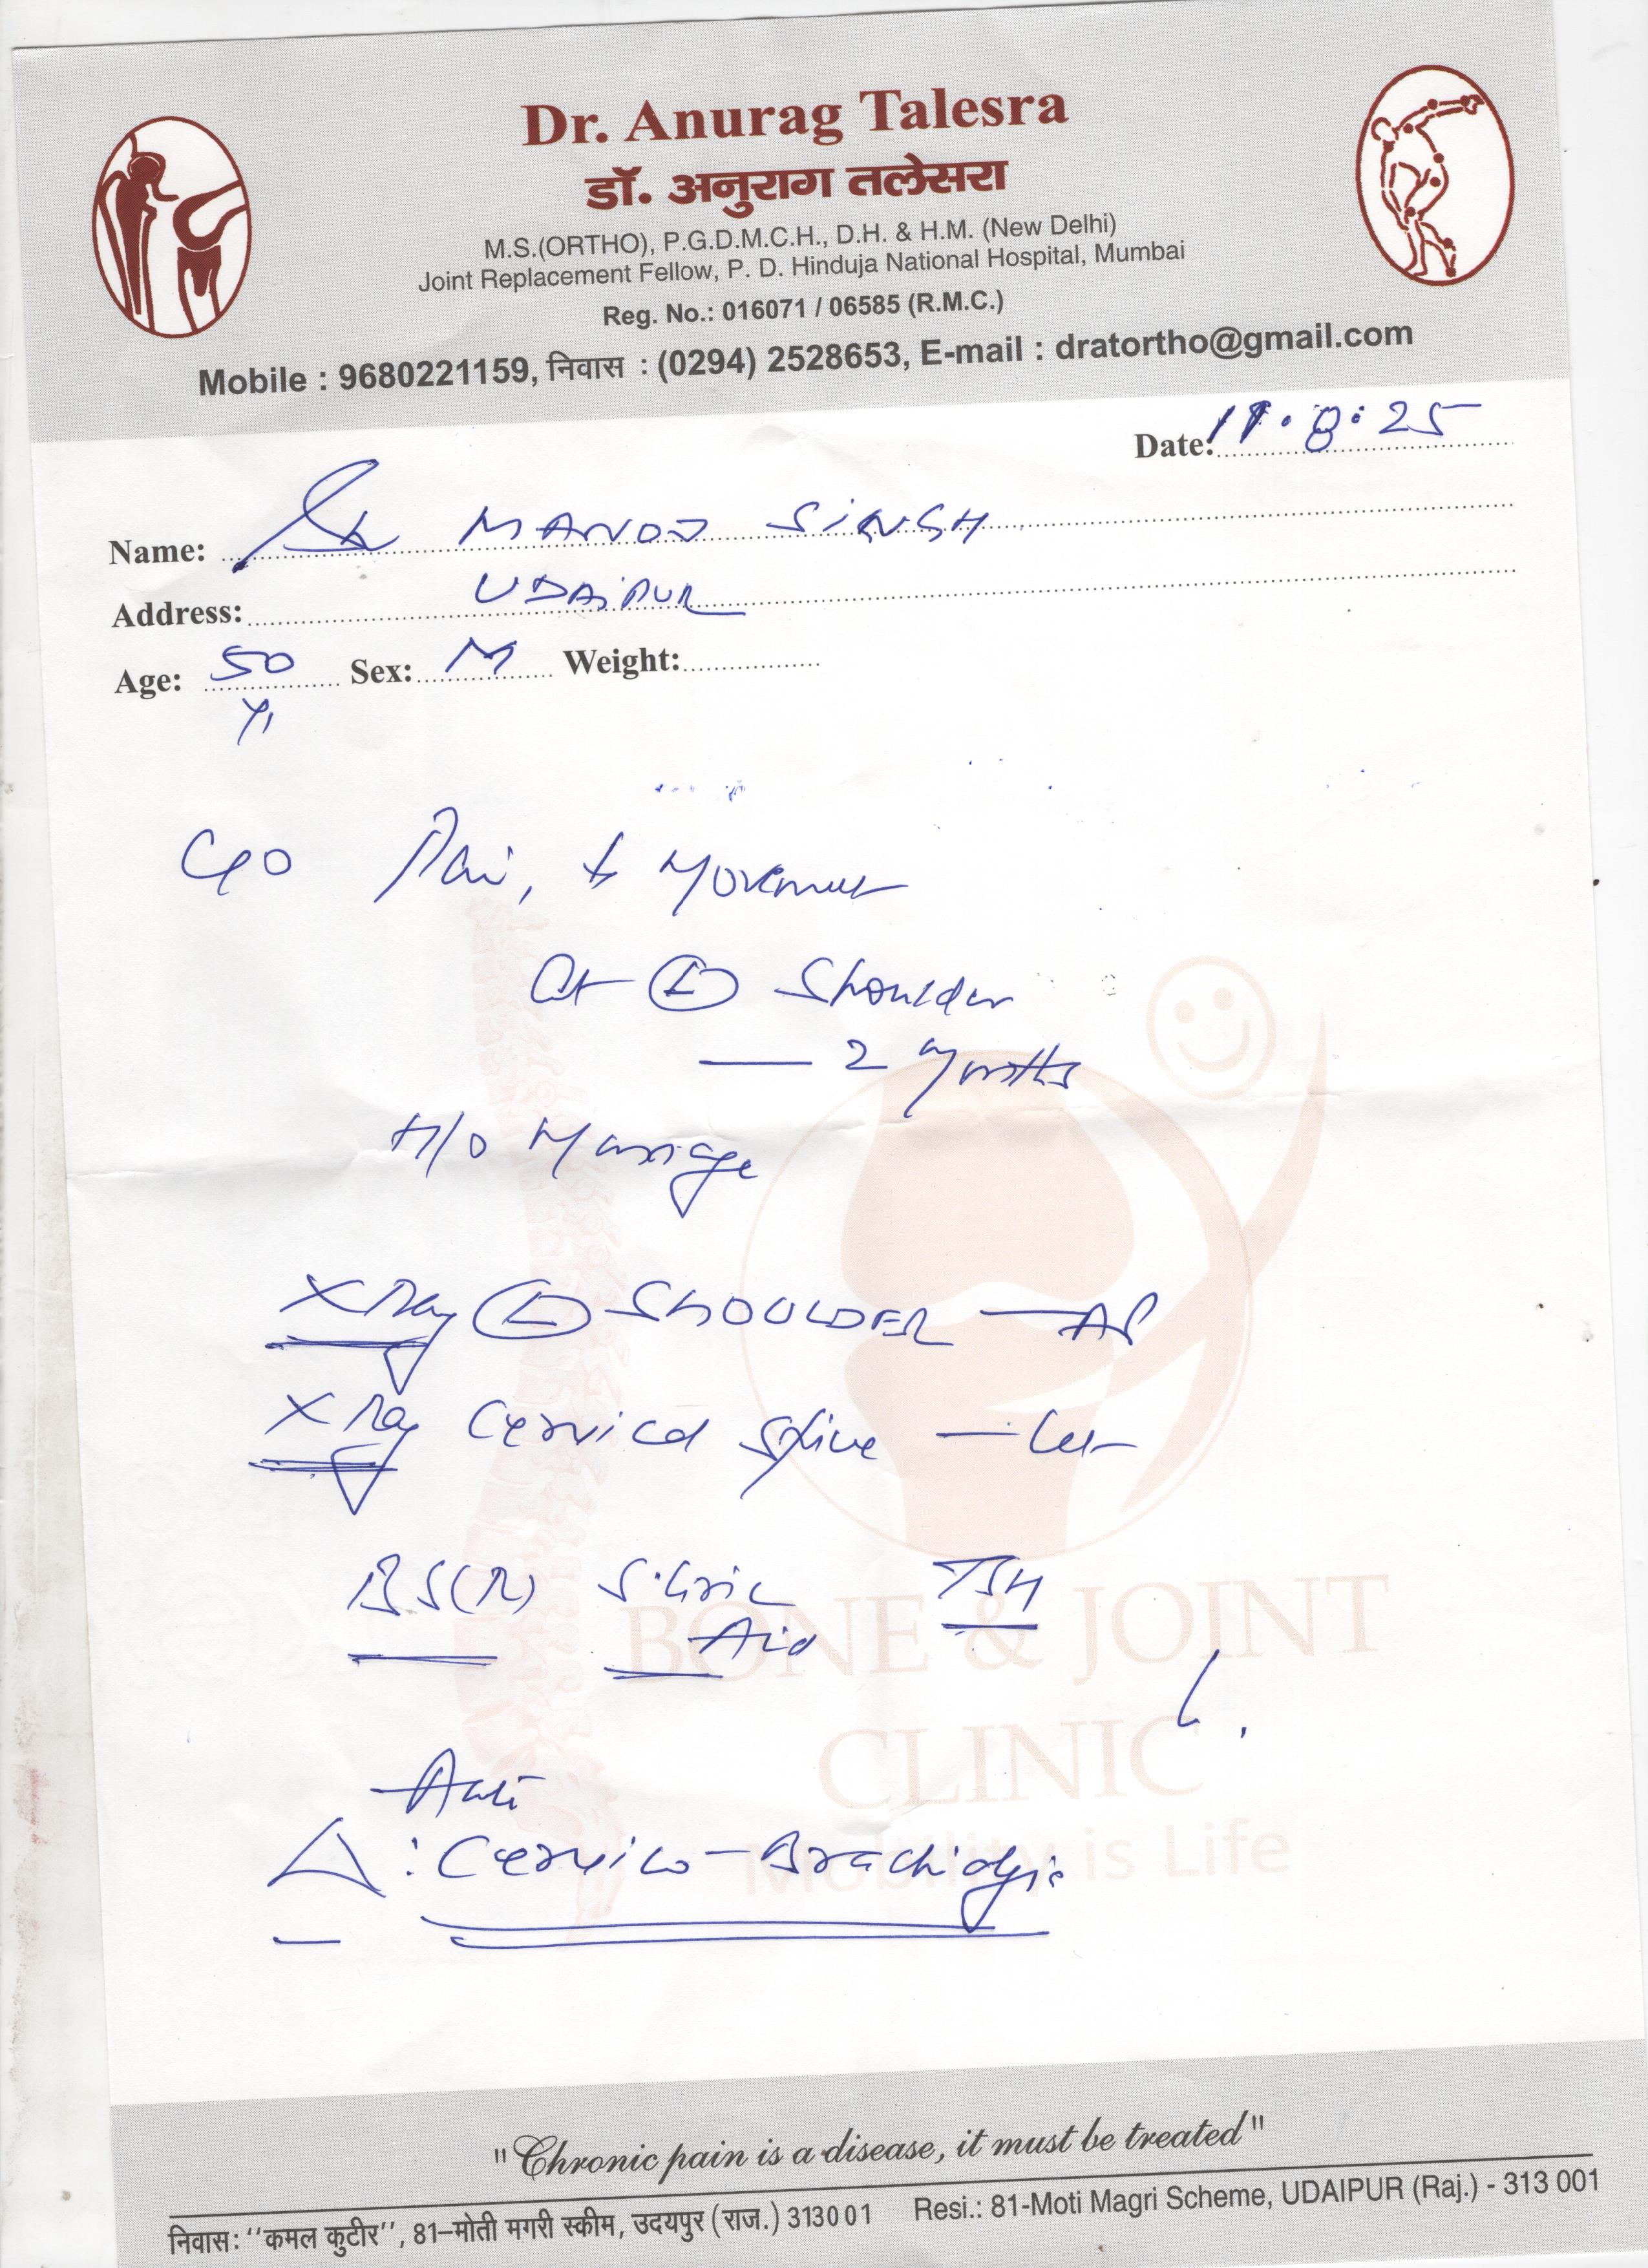 Dr. Anurag Talesra
डॉ. अनुराग तलेसरा
M.S.(ORTHO), P.G.D.M.C.H., D.H. & H.M. (New Delhi)
Joint Replacement Fellow, P. D. Hinduja National Hospital, Mumbai
Reg. No.: 016071 / 06585 (R.M.C.)
Mobile : 9680221159, निवास : (0294) 2528653, E-mail : dratortho@gmail.com
Date: 11.8.25
Name: MANOJ SINGH
Address: UDAIPUR
Age: 50 Sex: M Weight:
C/O Pain, Movement
at L Shoulder
— 2 Months
H/O Massage
X Ray L SHOULDER — AP
X Ray Cervical Spine — Lat
BS(R) S. Uric TSH
Acid
BONE & JOINT
CLINIC
Mobility is Life
Δ : Cervico-Brachialgia
"Chronic pain is a disease, it must be treated"
निवास: ''कमल कुटीर'', 81–मोती मगरी स्कीम, उदयपुर (राज.) 313001 Resi.: 81-Moti Magri Scheme, UDAIPUR (Raj.) - 313 001